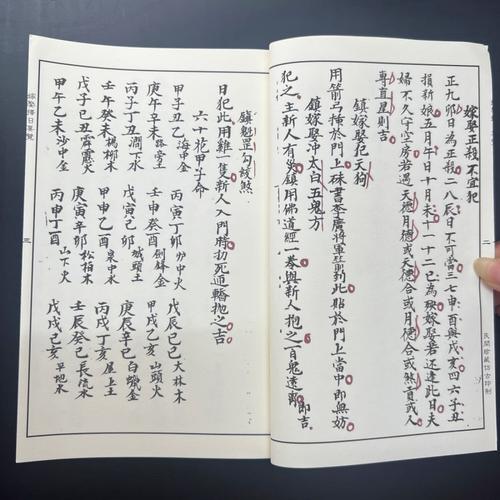 嫁娶正殺不宜犯
正九卯日為正殺二八辰日不可當三七申酉與戌亥四六子丑
損新娘五月午日十月未十一十二巳為殃嫁娶若还逢此日夫
婦不久守空房若遇天德月德或天德合或月德合或煞貢或人
專直星則吉
鎮嫁娶犯天狗
用箭弓掛於門上硃書李廣將軍箭到此貼於門上當中即無妨
鎮嫁娶冲太白五鬼方
犯之主新人有災鎮用佛道經一卷與新人抱之百鬼遠離即吉
鎮魁罡勾絞煞
日犯此用雞一隻新人入門時扨死逭轎抛之吉
六十花甲子命
甲子乙丑海中金 丙寅丁卯炉中火 戊辰己巳大林木
庚午辛未路旁土 壬申癸酉劍鋒金 甲戌乙亥山頭火
丙子丁丑澗下水 戊寅己卯城頭土 庚辰辛巳白蠟金
壬午癸未楊柳木 甲申乙酉泉中水 丙戌丁亥屋上土
戊子己丑霹靂火 庚寅辛卯松柏木 壬辰癸巳長流水
甲午乙未沙中金 丙申丁酉山下火 戊戌己亥平地木
嫁娶擇日要覽
三
二
民間珍藏仿古印制